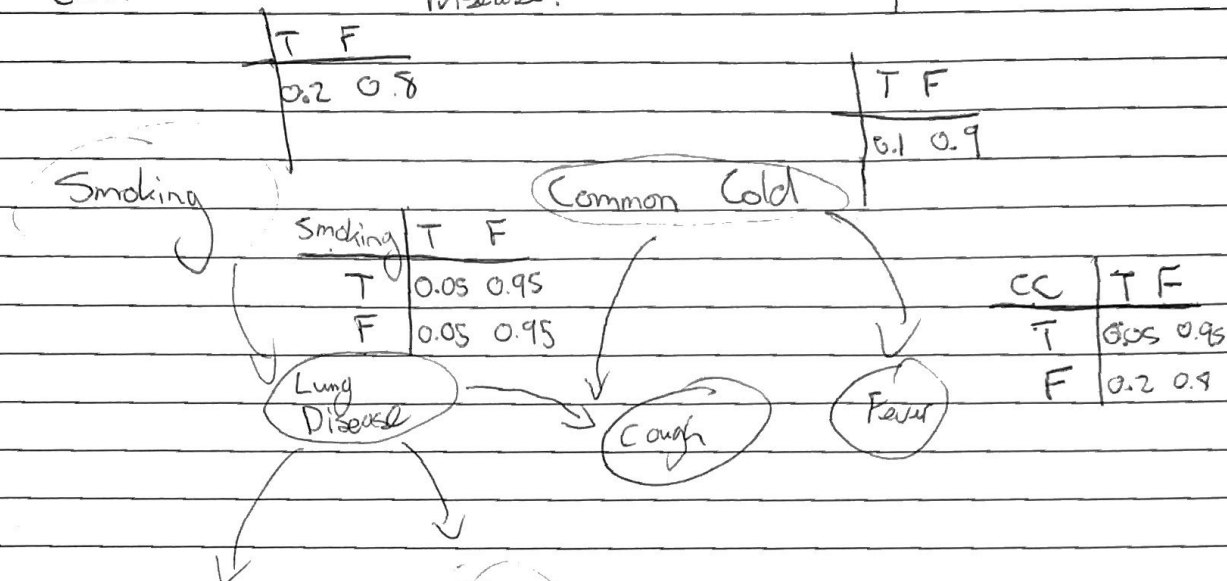 T F
0.2 0.8
T F
0.1 0.9
Smoking
Common Cold
Smoking T F
T 0.05 0.95
F 0.05 0.95
CC T F
T 0.05 0.95
F 0.2 0.8
Lung
Disease
Cough
Fever